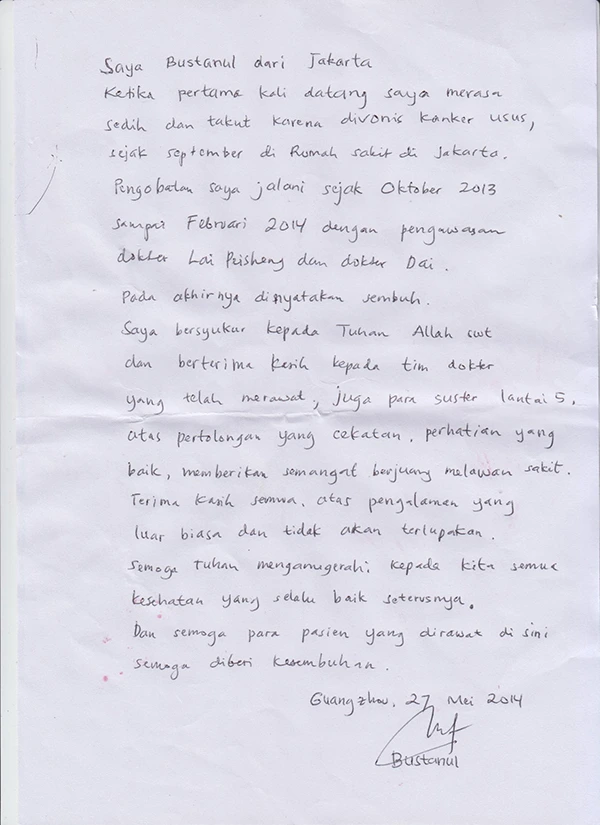 Saya Bustanul dari Jakarta
Ketika pertama kali datang saya merasa
sedih dan takut karena divonis kanker usus,
sejak september di Rumah sakit di Jakarta.
Pengobatan saya jalani sejak Oktober 2013
sampai Februari 2014 dengan pengawasan
dokter Lai Peisheng dan dokter Dai.
Pada akhirnya dinyatakan sembuh.
Saya bersyukur kepada Tuhan Allah swt
dan berterima kasih kepada tim dokter
yang telah merawat, juga para suster lantai 5,
atas pertolongan yang cekatan, perhatian yang
baik, memberikan semangat berjuang melawan sakit.
Terima kasih semua, atas pengalaman yang
luar biasa dan tidak akan terlupakan.
Semoga Tuhan menganugerahi kepada kita semua
kesehatan yang selalu baik seterusnya.
Dan semoga para pasien yang dirawat di sini
semoga diberi kesembuhan.
Guangzhou, 27 Mei 2014
Bustanul